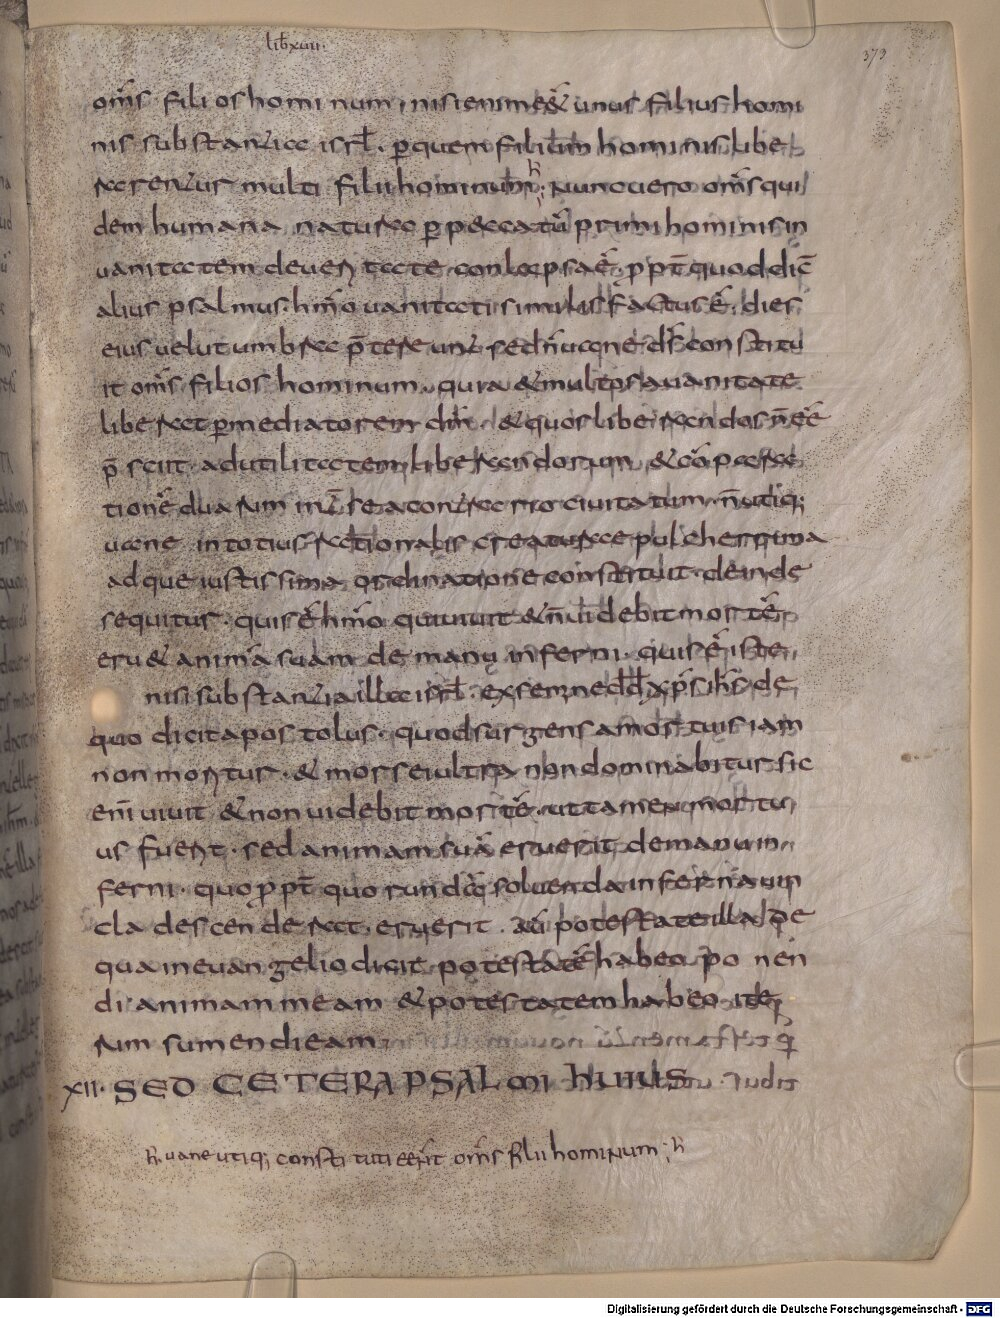 lib xvii·
373
om̅s filios hominum, nisi enim e&̅ unus filius homi
nis substantia isrl̅. p̱quem filium hominis libe
rarentur multi filii hominum; Nunc uero om̅s qui
dem humana natura p̱ p&ccatū primi hominis in
uanitatem deueritate conlapsa ē. p̱pt̄ quod dic̄
alius psalmus. hom̅o uanitati similis factus ē. dies
eius uelut umbra p̄tereunt sed n̄ uane d̄s constitu
it om̅s filios hominum. quia & multos a uanitate
liberat p̱ mediatorem ih̅m. & quos liberandos n̄ e̅e̅
p̄sciit. ad utilitatem liberandorum, & cōpara
tionē duarum int̄ se a contrario ciuitatum. n̄ utiq;
uane in totius rationalis creaturae pulcherrima
adque iustissima ordinatione constituit. deinde
sequitur. quis ē hom̅o qui uiuit & n̄ uidebit mortē,
eru& animā suam de manu inferni. quis ē iste,
nisi substantia illa isrl̅. ex semine dd̅ xp̅s ih̅s de
quo dicit apostolus. quod surgens a mortuis iam
non moritur. & mors ei ultra non dominabitur sic
eni̅ uiuit & non uidebit mortē. ut tamen mortu
us fuerit. sed animam suā eruerit de manu in
ferni. quo p̱pt̄ quorundā soluenda inferna uin
cla descenderat. eruerit. aū potestate illa de
qua in euangelio dicit. potestatē habeo po nen
di animam meam & potestatem habeo ite
rum sumendi eam;
XII· SED CETERA PSALMI HUIUS
h̄. uane utiq; constituti erit om̅s filii hominum; h̄